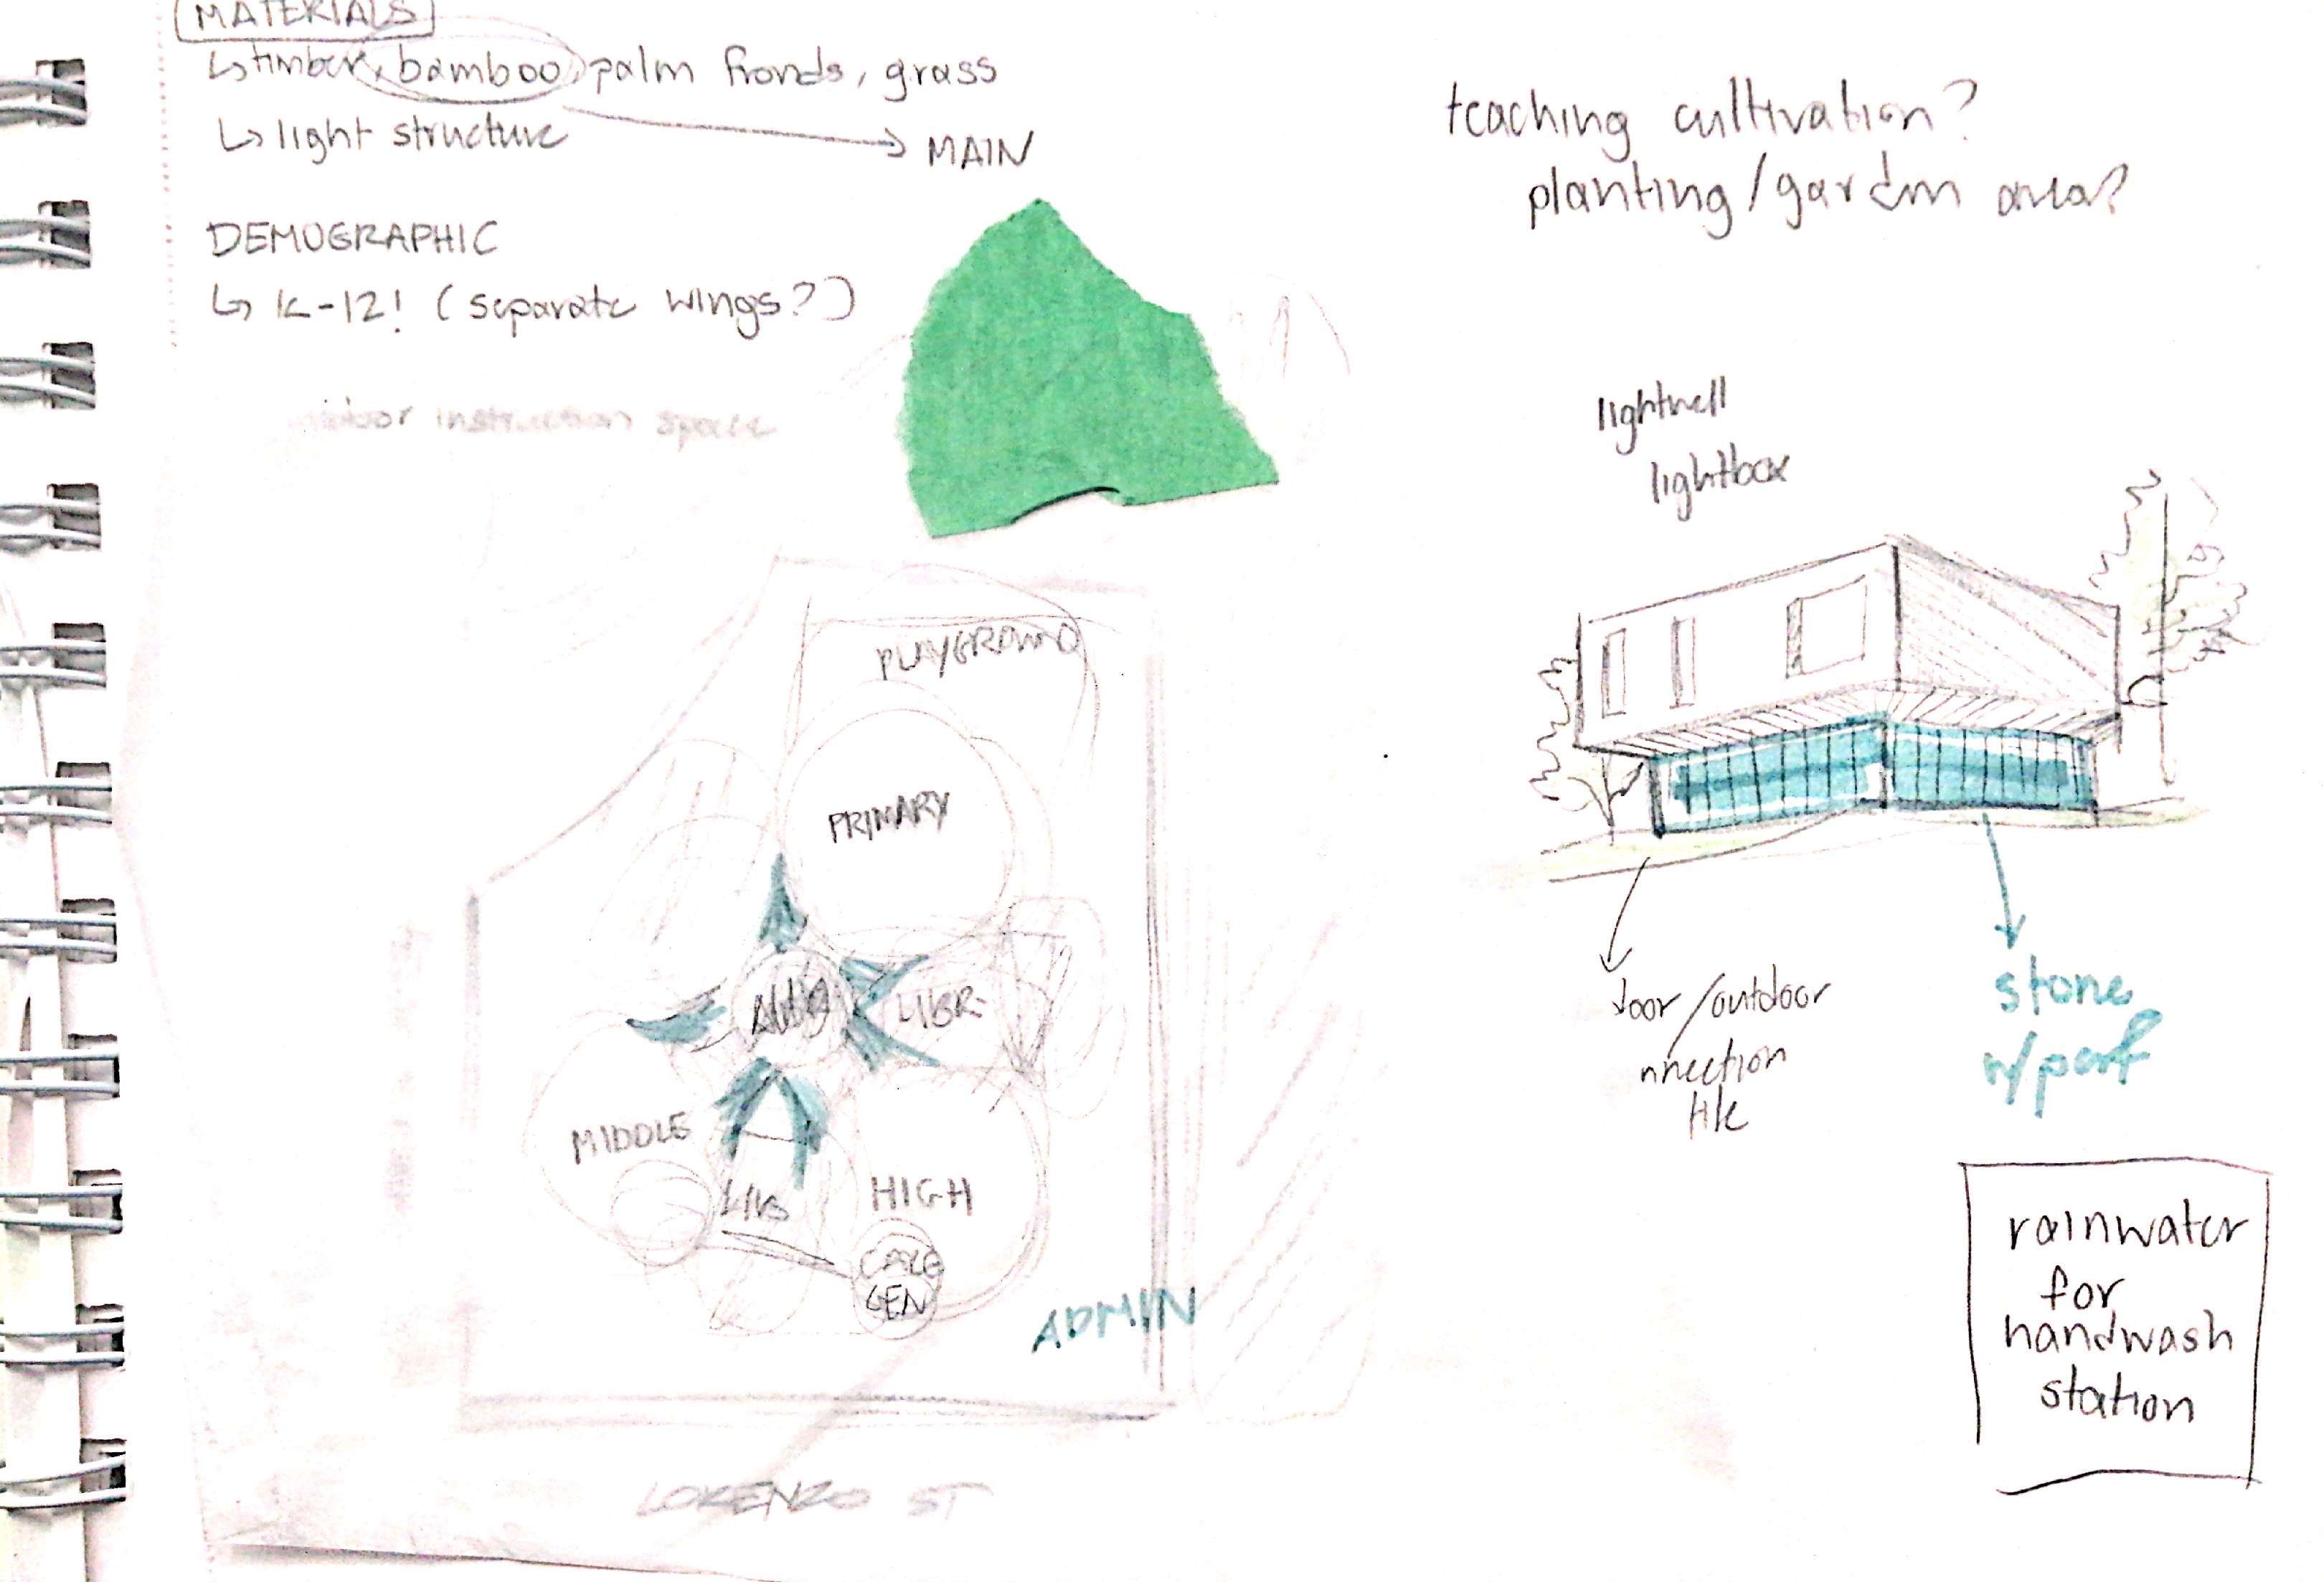 MATERIALS
↳ timber, bamboo, palm fronds, grass
↳ light structure
MAIN
DEMOGRAPHIC
↳ K-12! (separate wings?)
instruction space
PLAYGROUND
PRIMARY
LIBR-
MIDDLE
HIGH
GEN
ADMIN
LORENZO ST
teaching cultivation?
planting/garden area?
lightwell
lightbox
door/outdoor
nnection
tile
stone
w/ perf
rainwater
for
handwash
station